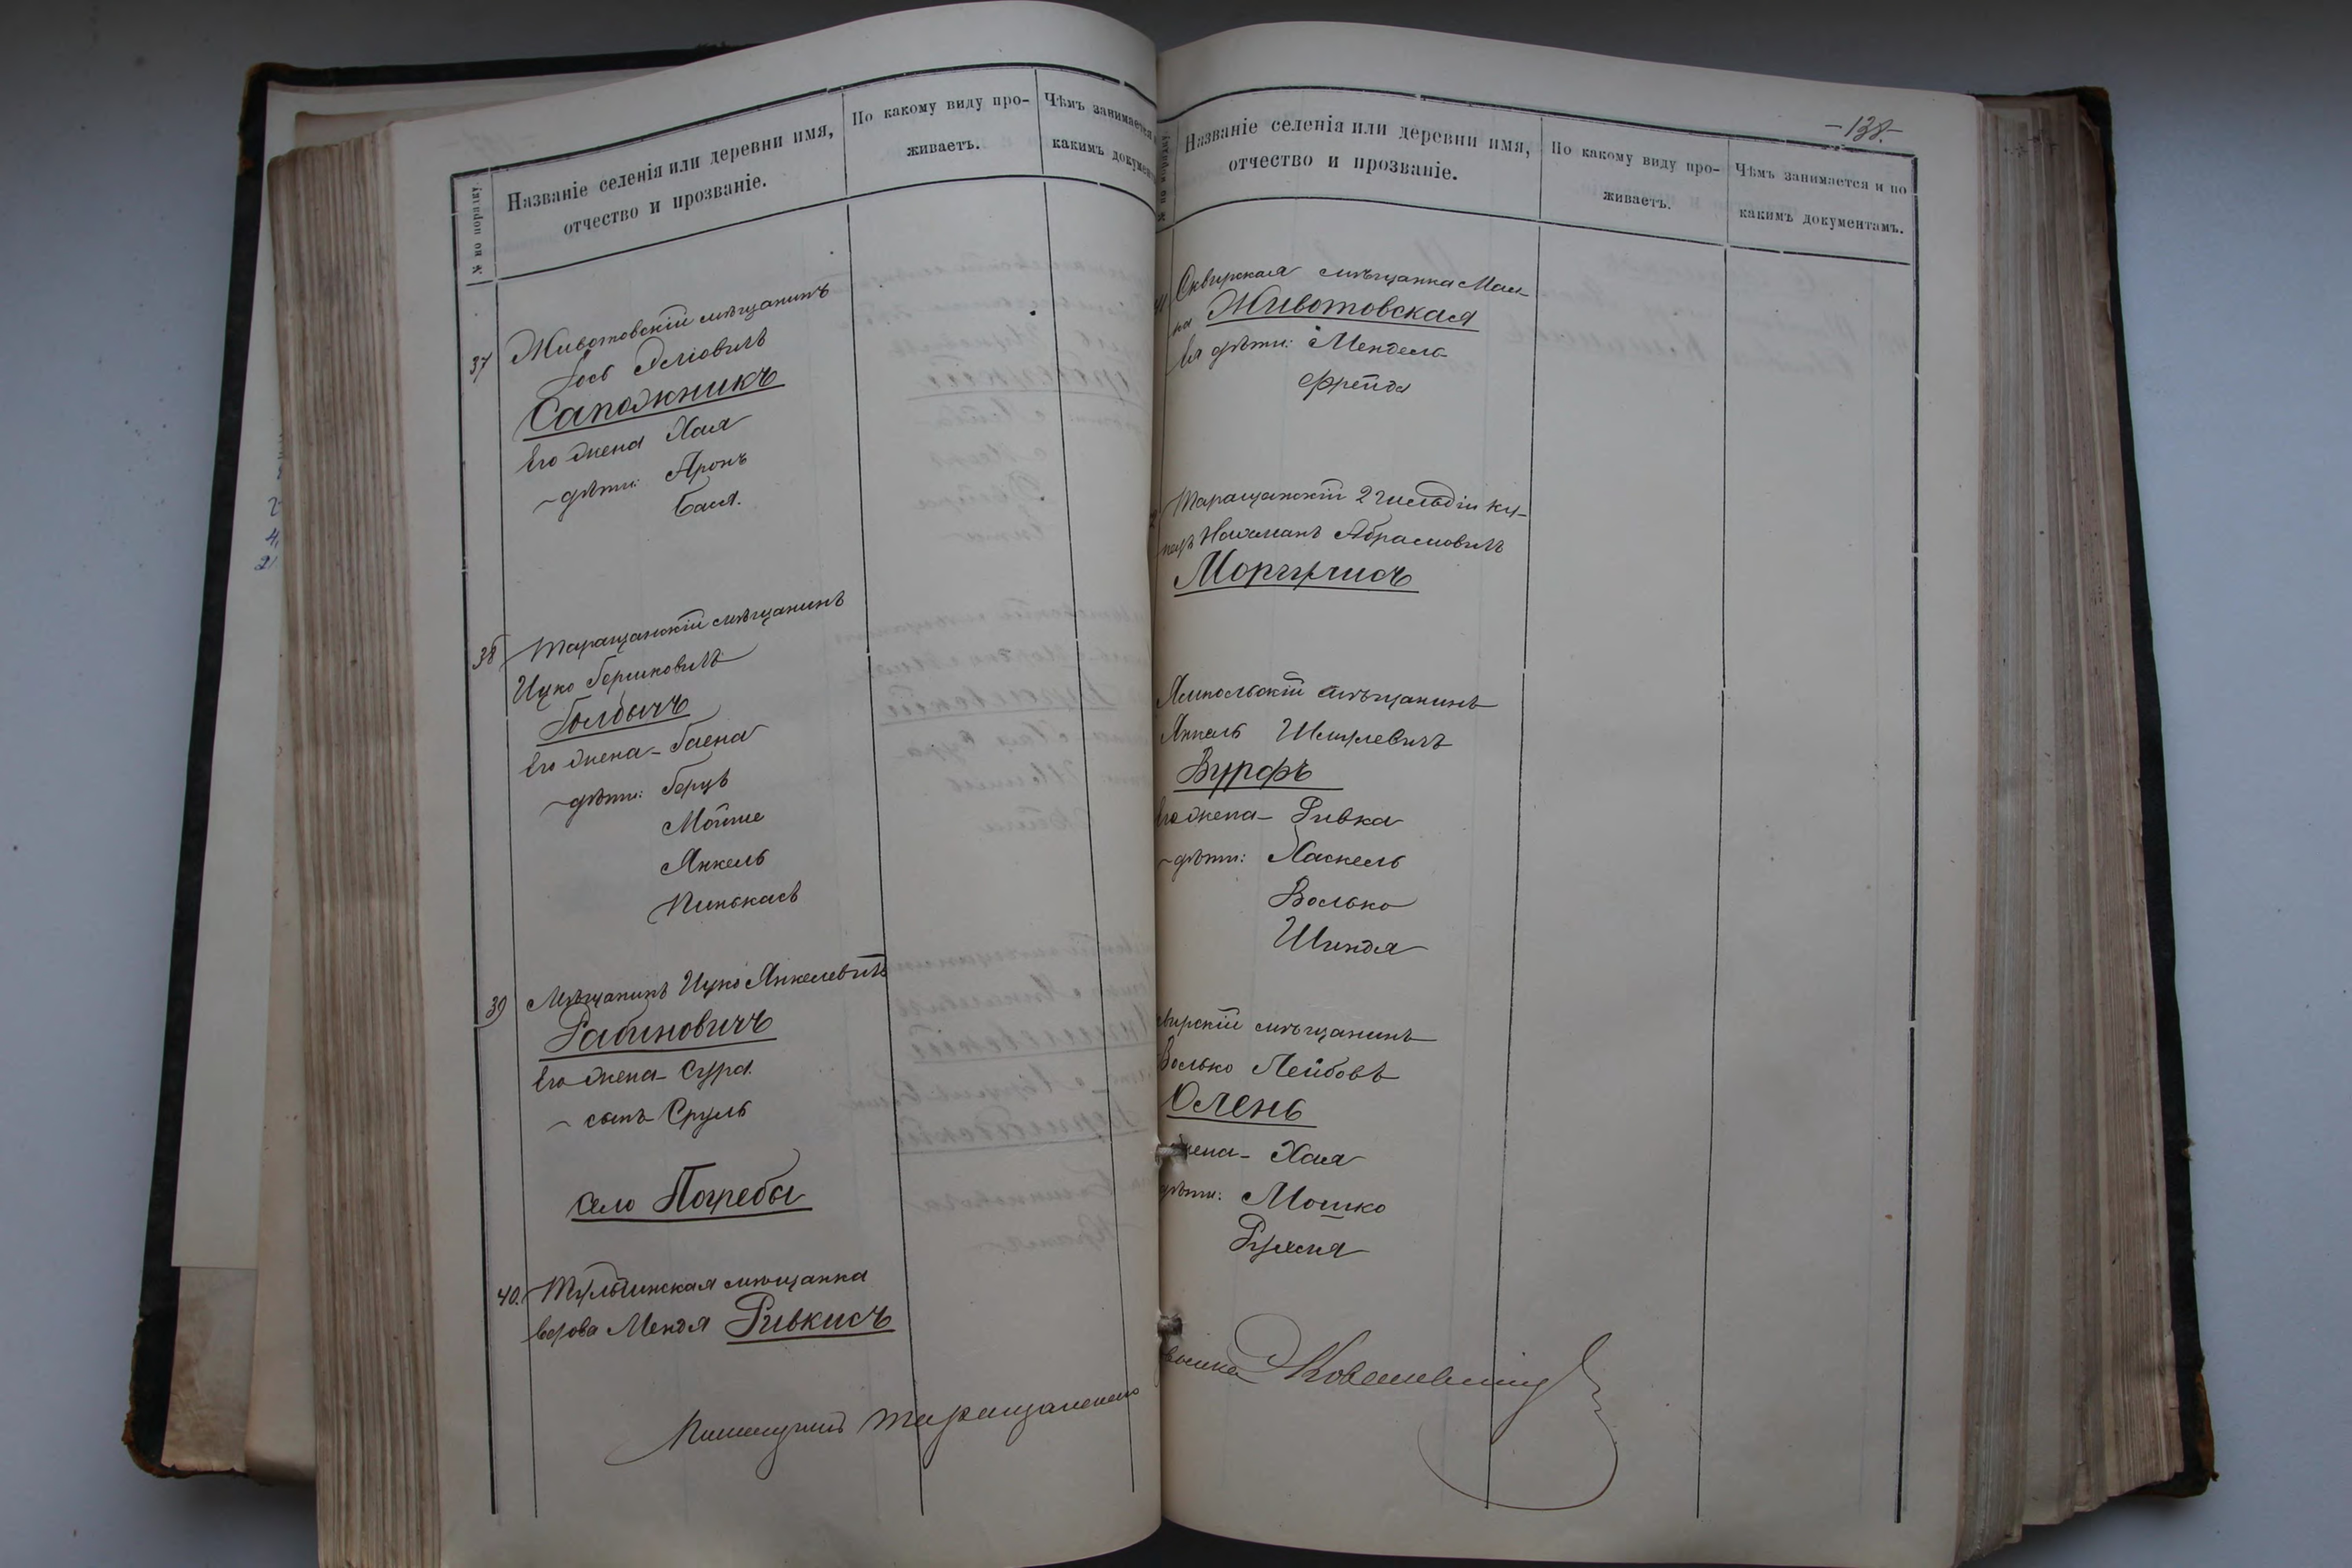 № по порядку.
Названіе селенія или деревни имя,
отчество и прозваніе.
По какому виду про-
живаетъ.
Чѣмъ занимается
какимъ
37
Животовскій мѣщанинъ
Іось
Сапожникъ
Его жена Хая
— дѣти: Аронъ
Бася.
38
Таращанскій мѣщанинъ
Ицко Гершковичъ
Его жена —
— дѣти: Герцъ
Мойше
Янкель
Пинькасъ
39
Мѣщанинъ Ицко Янкелевичъ
Рабиновичъ
Его жена — Сура.
— сынъ Сруль
Село Погребы
40.
Тульчинская мѣщанка
вдова Мендя Ривкисъ
Таращанскаго
— 138 —
Названіе селенія или деревни имя,
отчество и прозваніе.
По какому виду про-
живаетъ.
Чѣмъ занимается и по
какимъ документамъ.
Сквирская мѣщанка Мал-
ка Животовская
Ея дѣти: Мендель
Фрейда
Таращанскій 2 гильдіи ку-
пецъ Нахманъ Абрамовичъ
Моргулисъ
Ямпольскій мѣщанинъ
Янкель Шмулевичъ
Вурфъ
Его жена — Ривка
— дѣти: Хаскель
Волько
Шиндя
мѣщанинъ
Волько Лейбовъ
Олень
жена — Хая
дѣти: Мошко
Рухля